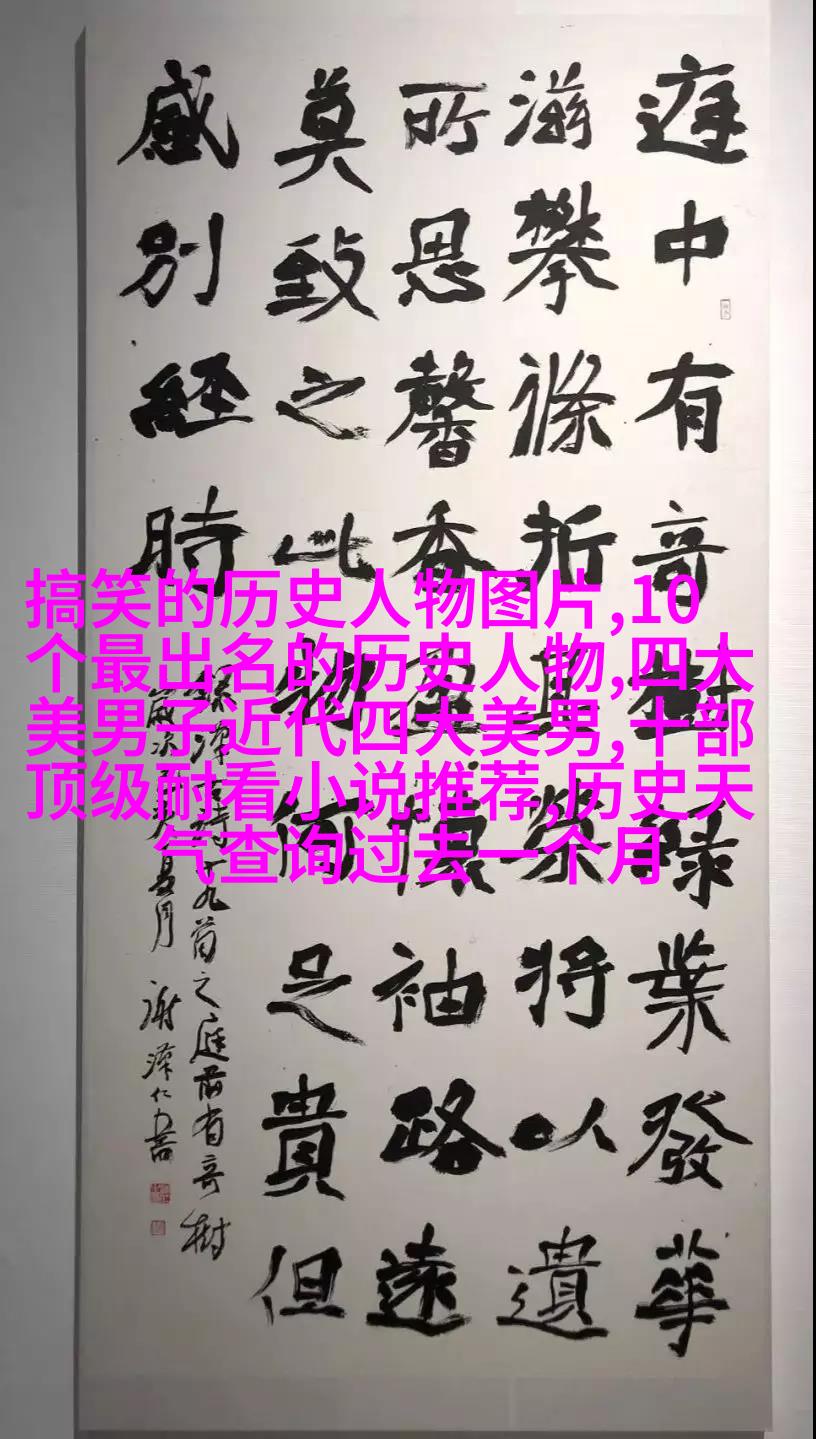 庭中有奇樹綠葉發華
滋攀條折其榮將以遺
所思馨香盈懷袖路遠
莫致之此物何足貴但
感別經時
錄漢古詩十九首之庭前有奇樹
歲次夏月 謝澤仁書
搞笑的历史人物图片,10
个最出名的历史人物,四大
美男子近代四大美男,十部
顶级耐看小说推荐,历史天
气查询过去一个月